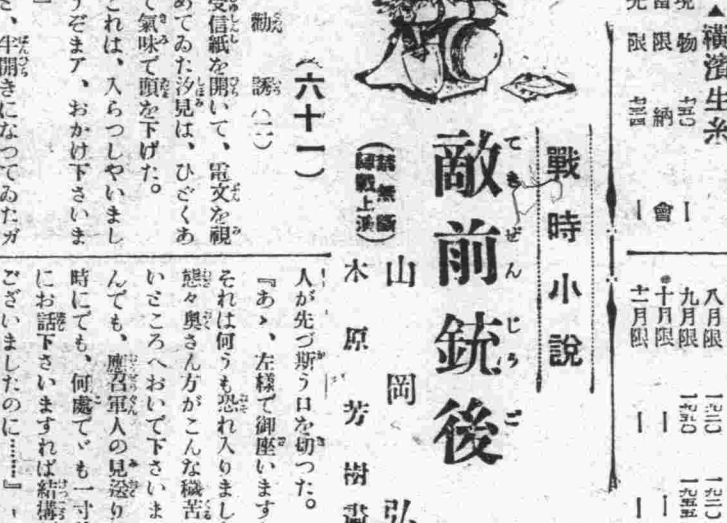 ▲橫濱生糸
現物
當限 納會
先限
八月限
九月限
十月限
十一月限
戰時小說
敵前銃後
てきぜんじうご
禁無斷
上演
山岡弘
木原芳樹畵
(六十一)
勸誘(二)
受信紙を開いて、電文を視
めてゐた汐見は、ひどくあ
て氣味で頭を下げた。
これは、入らつしやいまし
うぞまア、おかけ下さいま
』
き、半開きになつてゐたガ
人が先づ斯う口を切つた。
『あゝ、左樣で御座います
それは何うも恐れ入りまし
態々奧さん方がこんな穢苦
いところへおいで下さいま
んでも、應召軍人の見送り
時にでも、何處でゞも一寸
にお話下さいますれば結構
ございましたのに……』